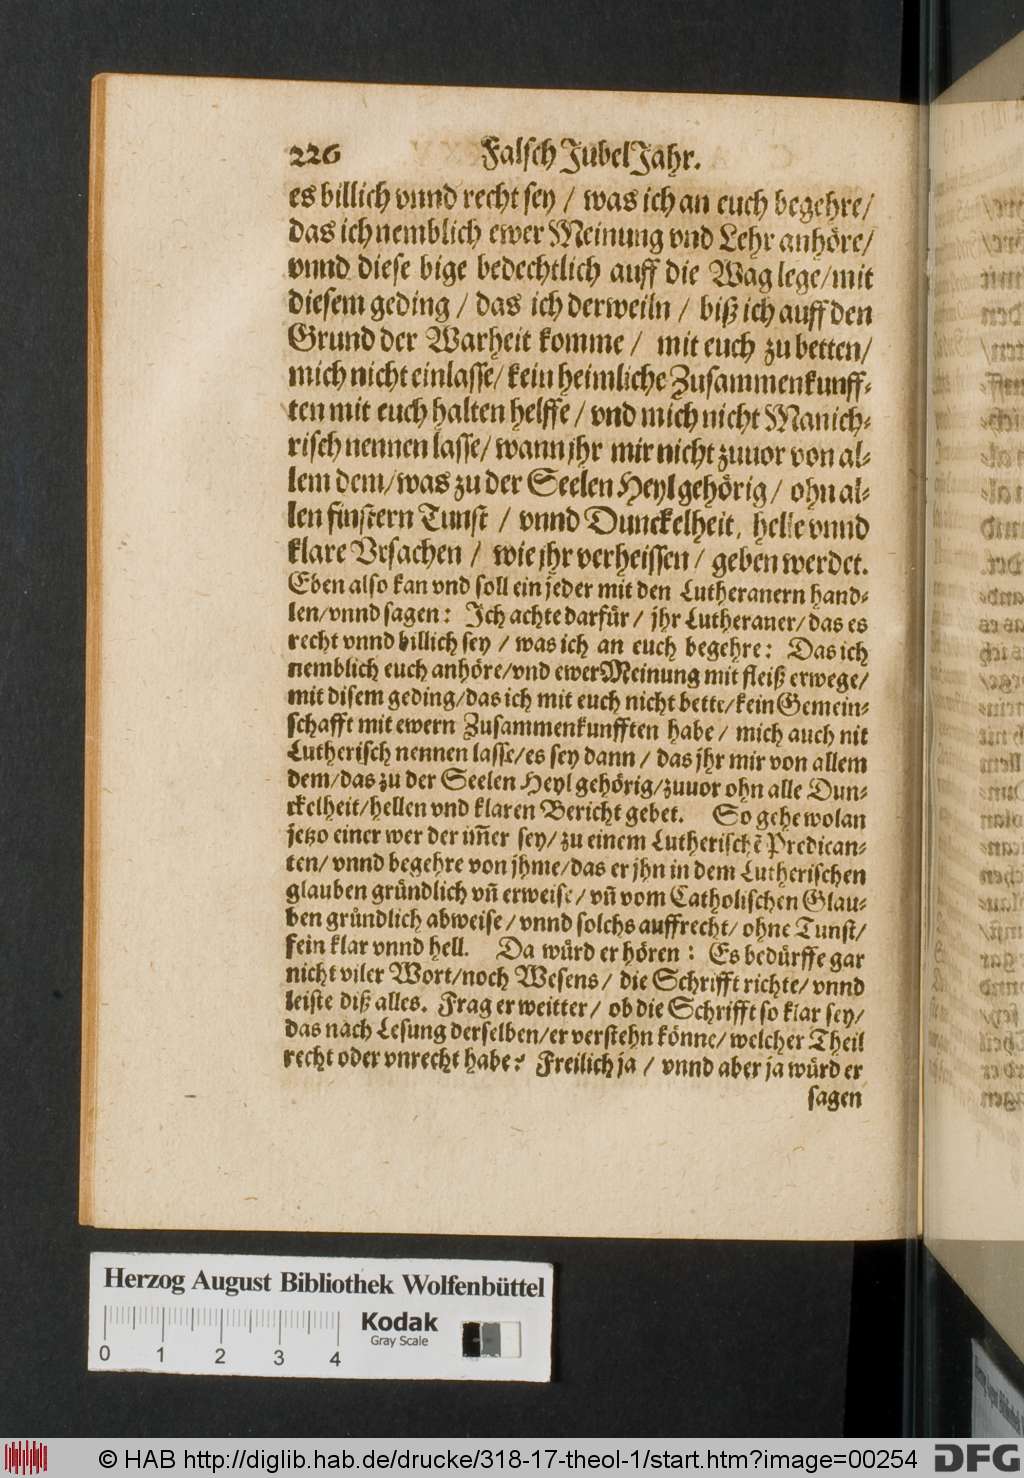 226 Falsch JubelJahr.
es billich vnnd recht sey / was ich an euch begehre/
das ich nemblich ewer Meinung vnd Lehr anhöre/
vnnd diese bige bedechtlich auff die Wag lege/mit
diesem geding / das ich derweiln / biß ich auff den
Grund der Warheit komme / mit euch zu betten/
mich nicht einlasse/ kein heimliche Zusammenkunff-
ten mit euch halten helffe / vnd mich nicht Manich-
risch nennen lasse/ wann jhr mir nicht zuuor von al-
lem dem/was zu der Seelen Heyl gehörig / ohn al-
len finstern Tunst / vnnd Dunckelheit, helle vnnd
klare Vrsachen / wie jhr verheissen / geben werdet.
Eben also kan vnd soll ein jeder mit den Lutheranern hand-
len/vnnd sagen: Ich achte darfür / jhr Lutheraner/ das es
recht vnnd billich sey / was ich an euch begehre: Das ich
nemblich euch anhöre/vnd ewer Meinung mit fleiß erwege/
mit disem geding/das ich mit euch nicht bette/kein Gemein-
schafft mit ewern Zusammenkunfften habe / mich auch nit
Lutherisch nennen lasse/es sey dann / das jhr mir von allem
dem/das zu der Seelen Heyl gehörig/zuuor ohn alle Dun-
ckelheit/hellen vnd klaren Bericht gebet. So gehe wolan
jetzo einer wer der im̄er sey/ zu einem Lutherischẽ Predican-
ten/ vnnd begehre von jhme/das er jhn in dem Lutherischen
glauben gründlich vn̄ erweise/ vn̄ vom Catholischen Glau-
ben gründlich abweise / vnnd solchs auffrecht/ ohne Tunst/
fein klar vnnd hell. Da würd er hören: Es bedürffe gar
nicht viler Wort/noch Wesens / die Schrifft richte/ vnnd
leiste diß alles. Frag er weitter / ob die Schrifft so klar sey/
das nach Lesung derselben/er verstehn könne/ welcher Theil
recht oder vnrecht habe? Freilich ja / vnnd aber ja würd er
sagen
Herzog August Bibliothek Wolfenbüttel
Kodak
Gray Scale
0 1 2 3 4
© HAB http://diglib.hab.de/drucke/318-17-theol-1/start.htm?image=00254 DFG